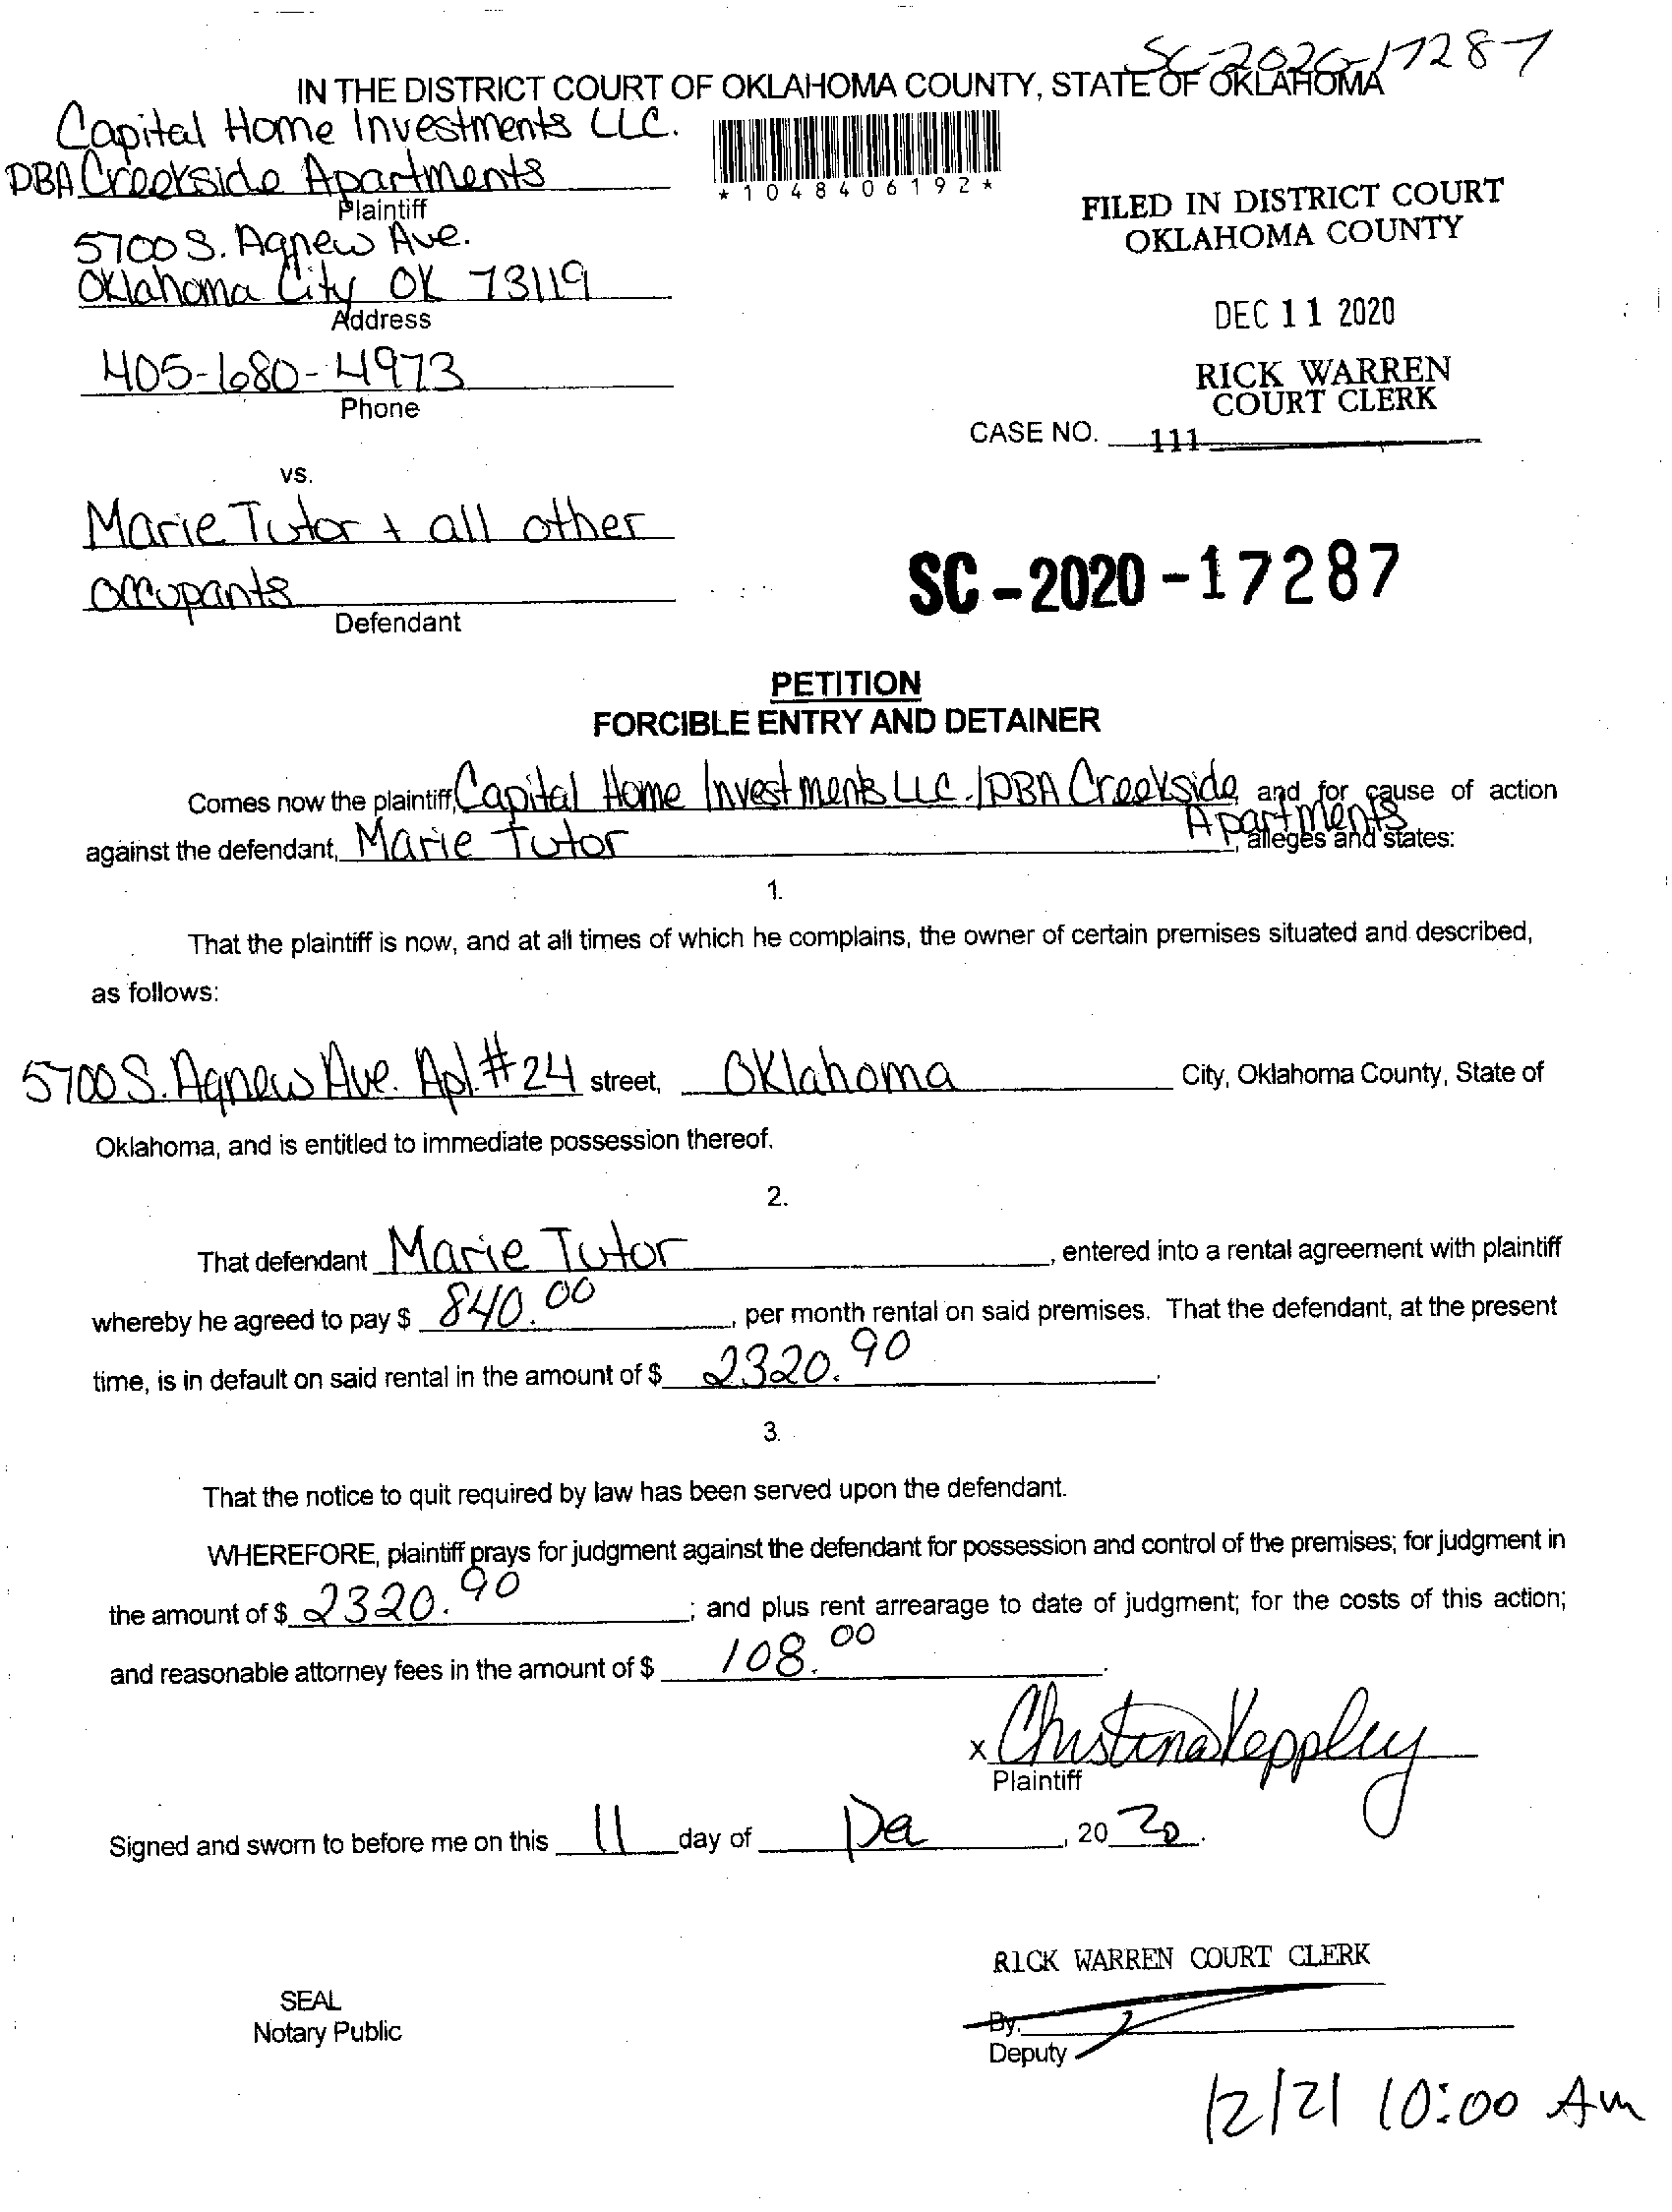 SC-2020-17287
IN THE DISTRICT COURT OF OKLAHOMA COUNTY, STATE OF OKLAHOMA
Capital Home Investments LLC.
DBA Creekside Apartments
Plaintiff
*1048406192*
FILED IN DISTRICT COURT
OKLAHOMA COUNTY
5700 S. Agnew Ave.
Oklahoma City OK 73119
Address
DEC 11 2020
405-680-4973
Phone
RICK WARREN
COURT CLERK
CASE NO. 111
vs.
Marie Tutor + all other
occupants
Defendant
SC-2020-17287
PETITION
FORCIBLE ENTRY AND DETAINER
Comes now the plaintiff, Capital Home Investments LLC. /DBA Creekside Apartments, and for cause of action
against the defendant, Marie Tutor, alleges and states:
1.
That the plaintiff is now, and at all times of which he complains, the owner of certain premises situated and described,
as follows:
5700 S. Agnew Ave. Apt. #24 street, Oklahoma City, Oklahoma County, State of
Oklahoma, and is entitled to immediate possession thereof.
2.
That defendant Marie Tutor, entered into a rental agreement with plaintiff
whereby he agreed to pay $ 840.00, per month rental on said premises. That the defendant, at the present
time, is in default on said rental in the amount of $ 2320.90.
3.
That the notice to quit required by law has been served upon the defendant.
WHEREFORE, plaintiff prays for judgment against the defendant for possession and control of the premises; for judgment in
the amount of $ 2320.90; and plus rent arrearage to date of judgment; for the costs of this action;
and reasonable attorney fees in the amount of $ 108.00.
x Christina Keppley
Plaintiff
Signed and sworn to before me on this 11 day of Dec, 2020.
RICK WARREN COURT CLERK
SEAL
Notary Public
By.
Deputy
12/21 10:00 Am